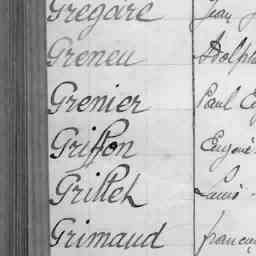 Grégaire Jean
Greneu Adolphe
Grenier Paul
Griffon Eugène
Grillet Louis
Grimaud François